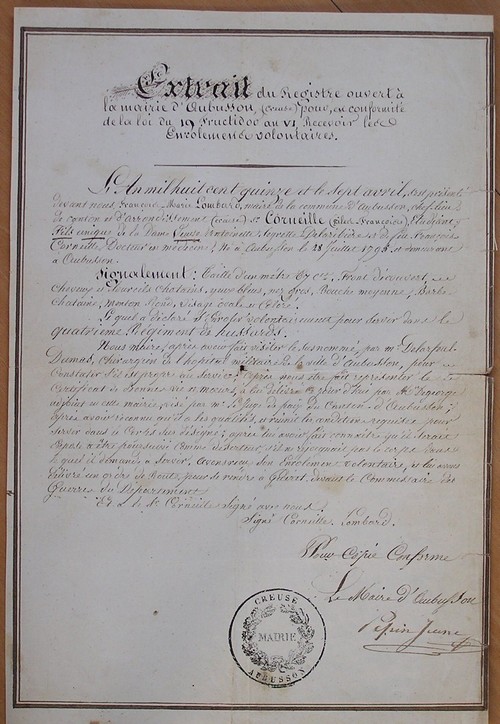 Extrait du Registre ouvert à
la mairie d'Aubusson, (creuse) pour, en conformité
de la loi du 19 Fructidor an VI Recevoir les
Enrôlements volontaires.
L'An mil huit cent quinze et le sept avril, s'est présenté
devant nous, François Marie Lombard, maire de la commune d'Aubusson, chef-lieu
de canton et d'arrondissement (creuse) Sr Corneille (Gilet François) Etudiant,
Fils unique de la Dame Antoinette et de feu François
Corneille, Docteur en médecine; Né à Aubusson le 28 Juillet 1795, et demeurant
à Aubusson.
Signalement: Taille d'un mètre 67 cent, Front Découvert,
Cheveux et Sourcils Chatains, yeux bleus, nez gros, Bouche moyenne, Barbe
Chataine, menton Rond, Visage ovale et Coloré.
Lequel a Déclaré s'Enroler volontairement pour servir dans le
quatrième Régiment de hussards.
Nous maire, après avoir fait visiter le susnommé, par mr Delarfeul-
Dumas, Chirurgien à l'hopital militaire de la ville d'Aubusson, pour
Constater s'il est propre au service; après nous être fait représenter le
Certificat de Bonnes vie et mœurs, à lui délivré par Mr
adjoint en cette mairie, visé par Mr le Juge de paix du Canton d'Aubusson;
après avoir reconnu qu'il a les qualités, et réunit les conditions requises pour
servir dans le Corps sus désigné; après lui avoir fait connaître qu'il serait
exposé à être poursuivi comme déserteur, s'il ne rejoignait pas le corps dans
lequel il demande à servir, avons reçu son Enrôlement volontaire, et lui avons
délivré un ordre de Route, pour se rendre à Guéret, devant le Commissaire des
Guerres du Département.
Et a le Sr Corneille Signé avec nous.
Signé Corneille, Lombard.
Pour Copie Conforme
Le Maire d'Aubusson
Pépin Jeune
CREUSE
MAIRIE
AUBUSSON